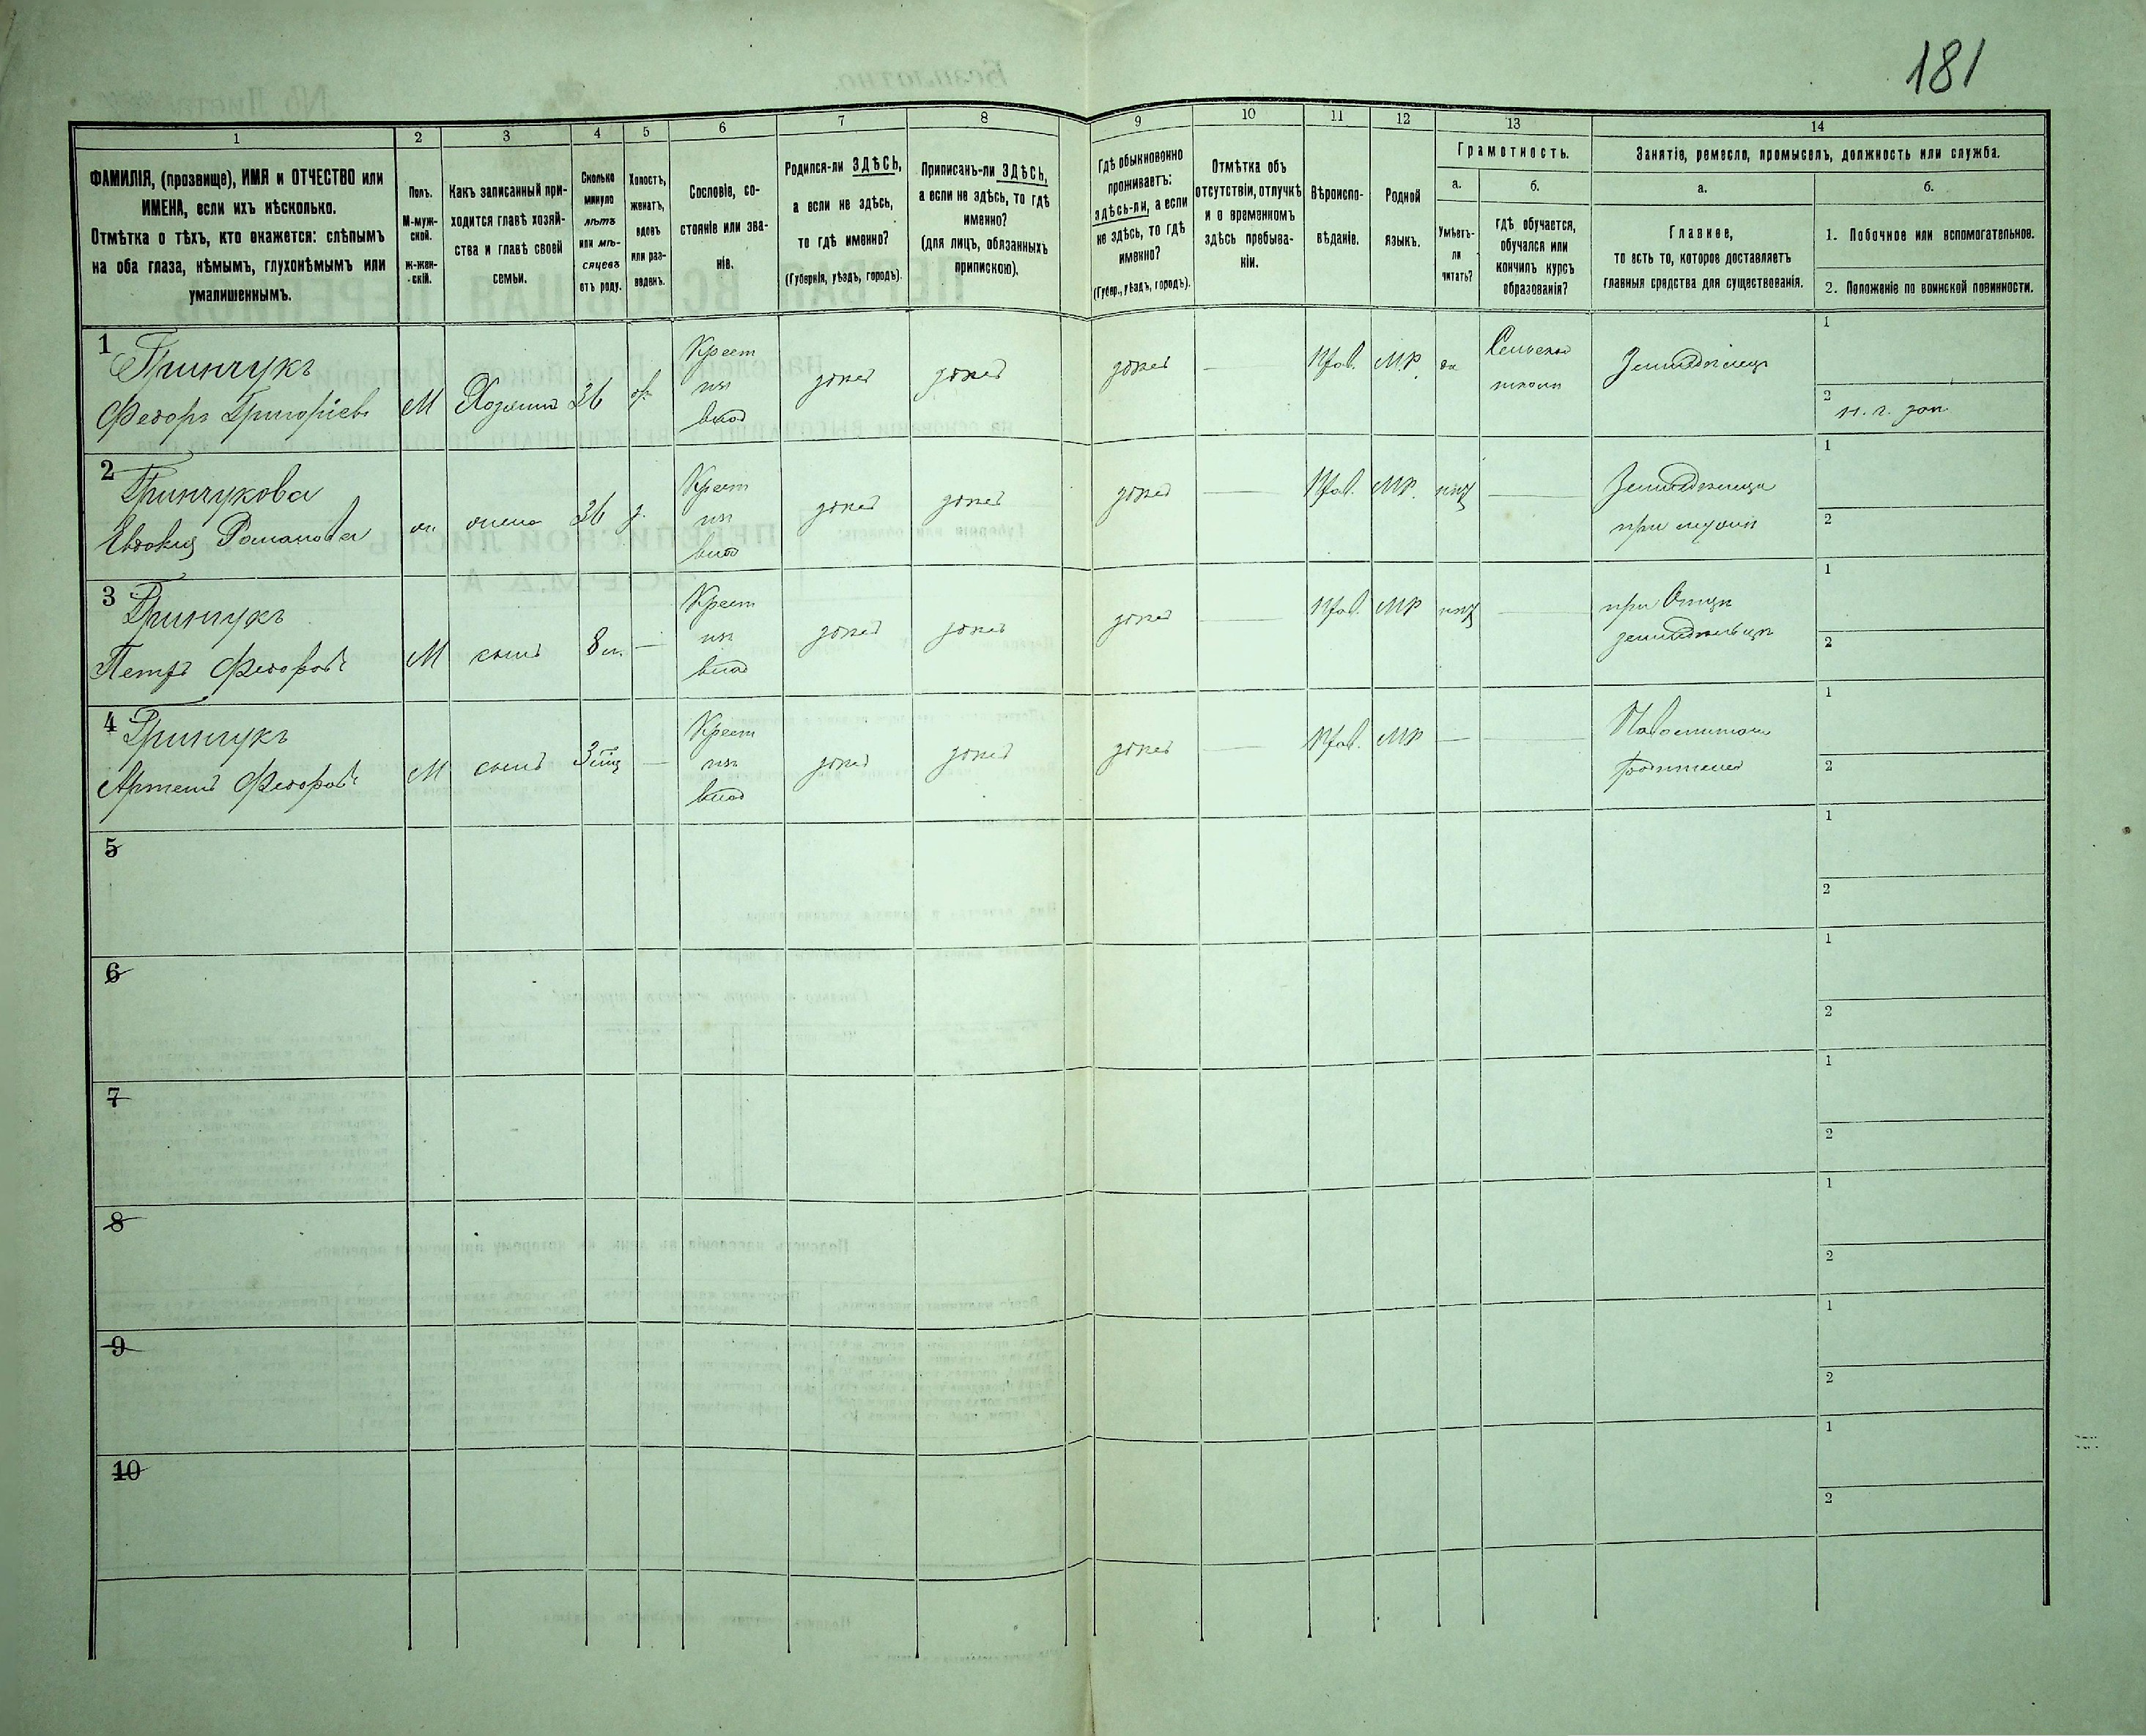 181
1
2
3
4
5
6
7
8
9
10
11
12
13
14
ФАМИЛІЯ, (прозвище), ИМЯ и ОТЧЕСТВО или
ИМЕНА, если ихъ нѣсколько.
Отмѣтка о тѣхъ, кто окажется: слѣпымъ
на оба глаза, нѣмымъ, глухонѣмымъ или
умалишеннымъ.
Полъ.
М-муж-
ской.
Ж-жен-
-скій.
Какъ записанный при-
ходится главѣ хозяй-
ства и главѣ своей
семьи.
Сколько
минуло
лѣтъ
или мѣ-
сяцевъ
отъ роду.
Холостъ,
женатъ,
вдовъ
или раз-
веденъ.
Сословіе, со-
стояніе или зва-
ніе.
Родился-ли ЗДѢСЬ,
а если не здѣсь,
то гдѣ именно?
(Губернія, уѣздъ, городъ).
Приписанъ-ли ЗДѢСЬ,
а если не здѣсь, то гдѣ
именно?
(для лицъ, обязанныхъ
припискою).
Гдѣ обыкновенно
проживаетъ:
здѣсь-ли, а если
не здѣсь, то гдѣ
именно?
(Губер., уѣздъ, городъ).
Отмѣтка объ
отсутствіи, отлучкѣ
и о временномъ
здѣсь пребыва-
ніи.
Вѣроиспо-
вѣданіе.
Родной
языкъ.
Грамотность.
а.
Умѣетъ-
ли
читать?
б.
гдѣ обучается,
обучался или
кончилъ курсъ
образованія?
Занятіе, ремесло, промыселъ, должность или служба.
а.
Главное,
то есть то, которое доставляетъ
главныя средства для существованія.
б.
1. Побочное или вспомогательное.
2. Положеніе по воинской повинности.
1
Гринчукъ
Федоръ Григорьевъ
М
Хозяинъ
36
Крест
изъ
влад
здѣсь
здѣсь
здѣсь
—
Прав.
М.Р.
да
Сельской
школи
Земледѣлецъ
1
2
2
Гринчукова
Евдокия Романова
ж
жена
36
Крест
изъ
влад
здѣсь
здѣсь
здѣсь
—
Прав.
М.Р.
нѣт
—
Земледѣлица
при мужѣ
1
2
3
Гринчукъ
Петръ Федоровъ
М
сынъ
8 л.
—
Крест
изъ
влад
здѣсь
здѣсь
здѣсь
—
Прав.
МР
нѣт
—
при Отцѣ
земледѣльцѣ
1
2
4
Гринчукъ
Артемъ Федоровъ
М
сынъ
—
Крест
изъ
влад
здѣсь
здѣсь
здѣсь
—
Прав.
МР
—
—
родителей
1
2
5
1
2
6
1
2
7
1
2
8
1
2
9
1
2
10
1
2